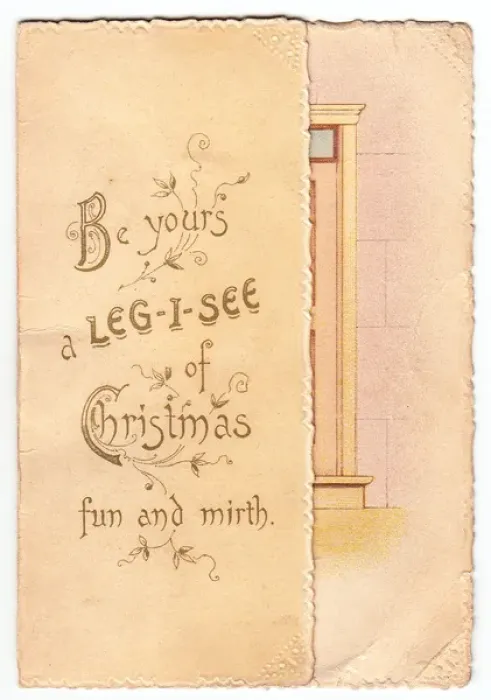 Be yours
a LEG-I-SEE
of
Christmas
fun and mirth.